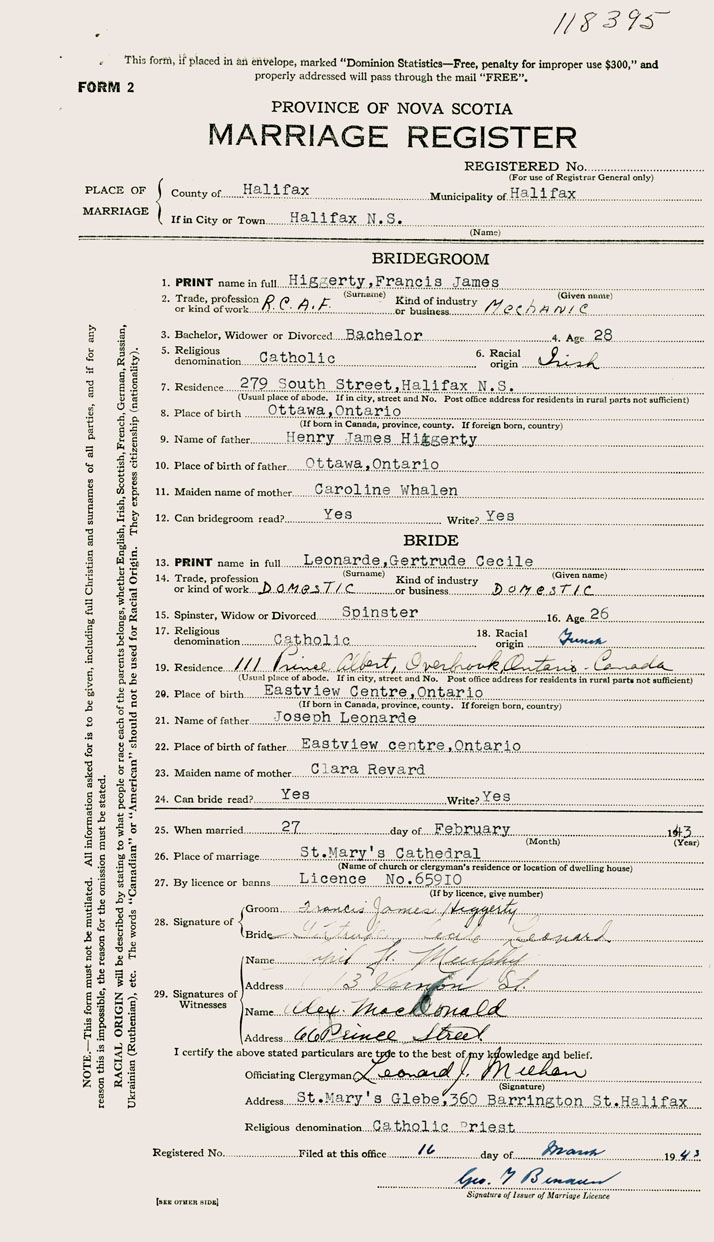 118395
This form, if placed in an envelope, marked "Dominion Statistics—Free, penalty for improper use $300," and
properly addressed will pass through the mail "FREE".
FORM 2
PROVINCE OF NOVA SCOTIA
MARRIAGE REGISTER
REGISTERED No.
(For use of Registrar General only)
PLACE OF MARRIAGE
County of Halifax Municipality of Halifax
If in City or Town Halifax N.S.
(Name)
BRIDEGROOM
1. PRINT name in full Higgerty,Francis James
(Surname) (Given name)
2. Trade, profession or kind of work R.C.A.F. Kind of industry or business MECHANIC
3. Bachelor, Widower or Divorced Bachelor 4. Age 28
5. Religious denomination Catholic 6. Racial origin Irish
7. Residence 279 South Street,Halifax N.S.
(Usual place of abode. If in city, street and No. Post office address for residents in rural parts not sufficient)
8. Place of birth Ottawa,Ontario
(If born in Canada, province, county. If foreign born, country)
9. Name of father Henry James Higgerty
10. Place of birth of father Ottawa,Ontario
11. Maiden name of mother Caroline Whalen
12. Can bridegroom read? Yes Write? Yes
BRIDE
13. PRINT name in full Leonarde,Gertrude Cecile
(Surname) (Given name)
14. Trade, profession or kind of work DOMESTIC Kind of industry or business DOMESTIC
15. Spinster, Widow or Divorced Spinster 16. Age 26
17. Religious denomination Catholic 18. Racial origin French
19. Residence 111 Prince Albert, Overbrook, Ontario - Canada
(Usual place of abode. If in city, street and No. Post office address for residents in rural parts not sufficient)
20. Place of birth Eastview Centre,Ontario
(If born in Canada, province, county. If foreign born, country)
21. Name of father Joseph Leonarde
22. Place of birth of father Eastview centre,Ontario
23. Maiden name of mother Clara Revard
24. Can bride read? Yes Write? Yes
25. When married 27 day of February 1943
(Month) (Year)
26. Place of marriage St.Mary's Cathedral
(Name of church or clergyman's residence or location of dwelling house)
27. By licence or banns Licence No.65910
(If by licence, give number)
28. Signature of
Groom Francis James Higgerty
Bride Gertrude Cecile Leonard
29. Signatures of Witnesses
Name Murphy
Address 13 Vernon St.
Name Alex. MacDonald
Address 66 Prince Street
I certify the above stated particulars are true to the best of my knowledge and belief.
Officiating Clergyman Leonard J. Meehan
(Signature)
Address St.Mary's Glebe,360 Barrington St.Halifax
Religious denomination Catholic Priest
Registered No. Filed at this office 16 day of March 1943
Geo.
Signature of Issuer of Marriage Licence
[SEE OTHER SIDE]
NOTE.—This form must not be mutilated. All information asked for is to be given, including full Christian and surnames of all parties, and if for any
reason this is impossible, the reason for the omission must be stated.
RACIAL ORIGIN will be described by stating to what people or race each of the parents belongs, whether English, Irish, Scottish, French, German, Russian,
Ukrainian (Ruthenian), etc. The words "Canadian" or "American" should not be used for Racial Origin. They express citizenship (nationality).